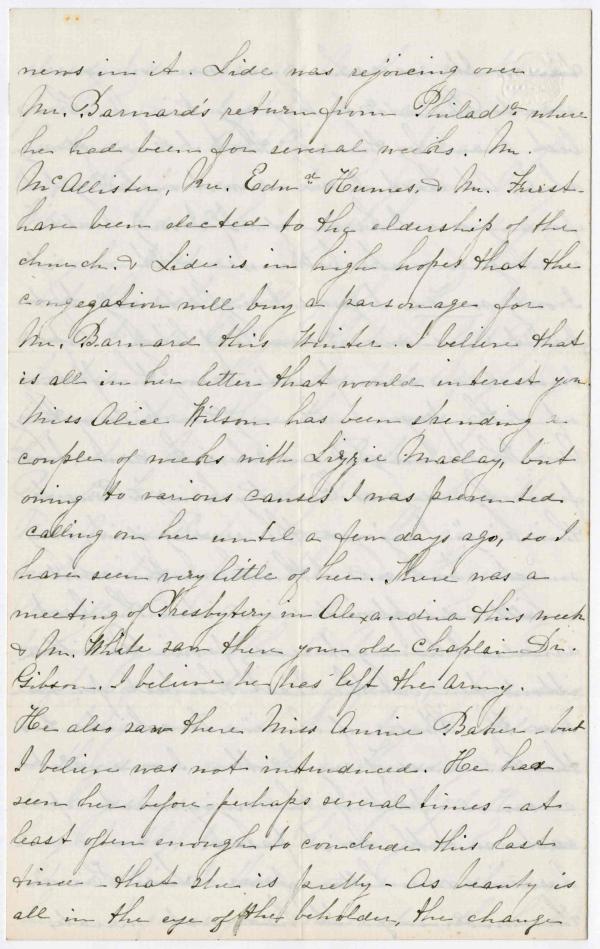 news in it. Lide was rejoicing over
Mr. Barnard's return from Philada where
he had been for several weeks. Mr.
McAllister, Mr. Edwd Humes, & Mr. Furst
have been elected to the eldership of the
church. & Lide is in high hopes that the
congegation will buy a parsonage for
Mr. Barnard this Winter. I believe that
is all in her letter that would interest you
Miss Alice Wilson has been spending a
couple of weeks with Lizzie Maclay, but
owing to various causes I was prevented
calling on her until a few days ago, so I
have seen very little of her. There was a
meeting of Presbytery in Alexandria this week
& Mr. White saw there your old chaplain Dr.
Gibson. I believe he has left the army.
He also saw there Miss Annie Baker - but
I believe was not introduced. He had
seen her before - perhaps several times - at
least often enough to conclude this last
time - that she is pretty - As beauty is
all in the eye of the beholder, the change